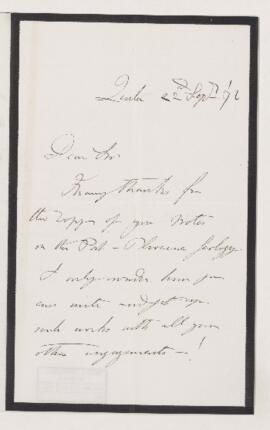 22nd Sept /72
Dear Sir
Many thanks for
the copy of your Notes
on the Post-Pliocene Geology.
I only wonder how you
can write and get up
such works with all your
other engagements - !